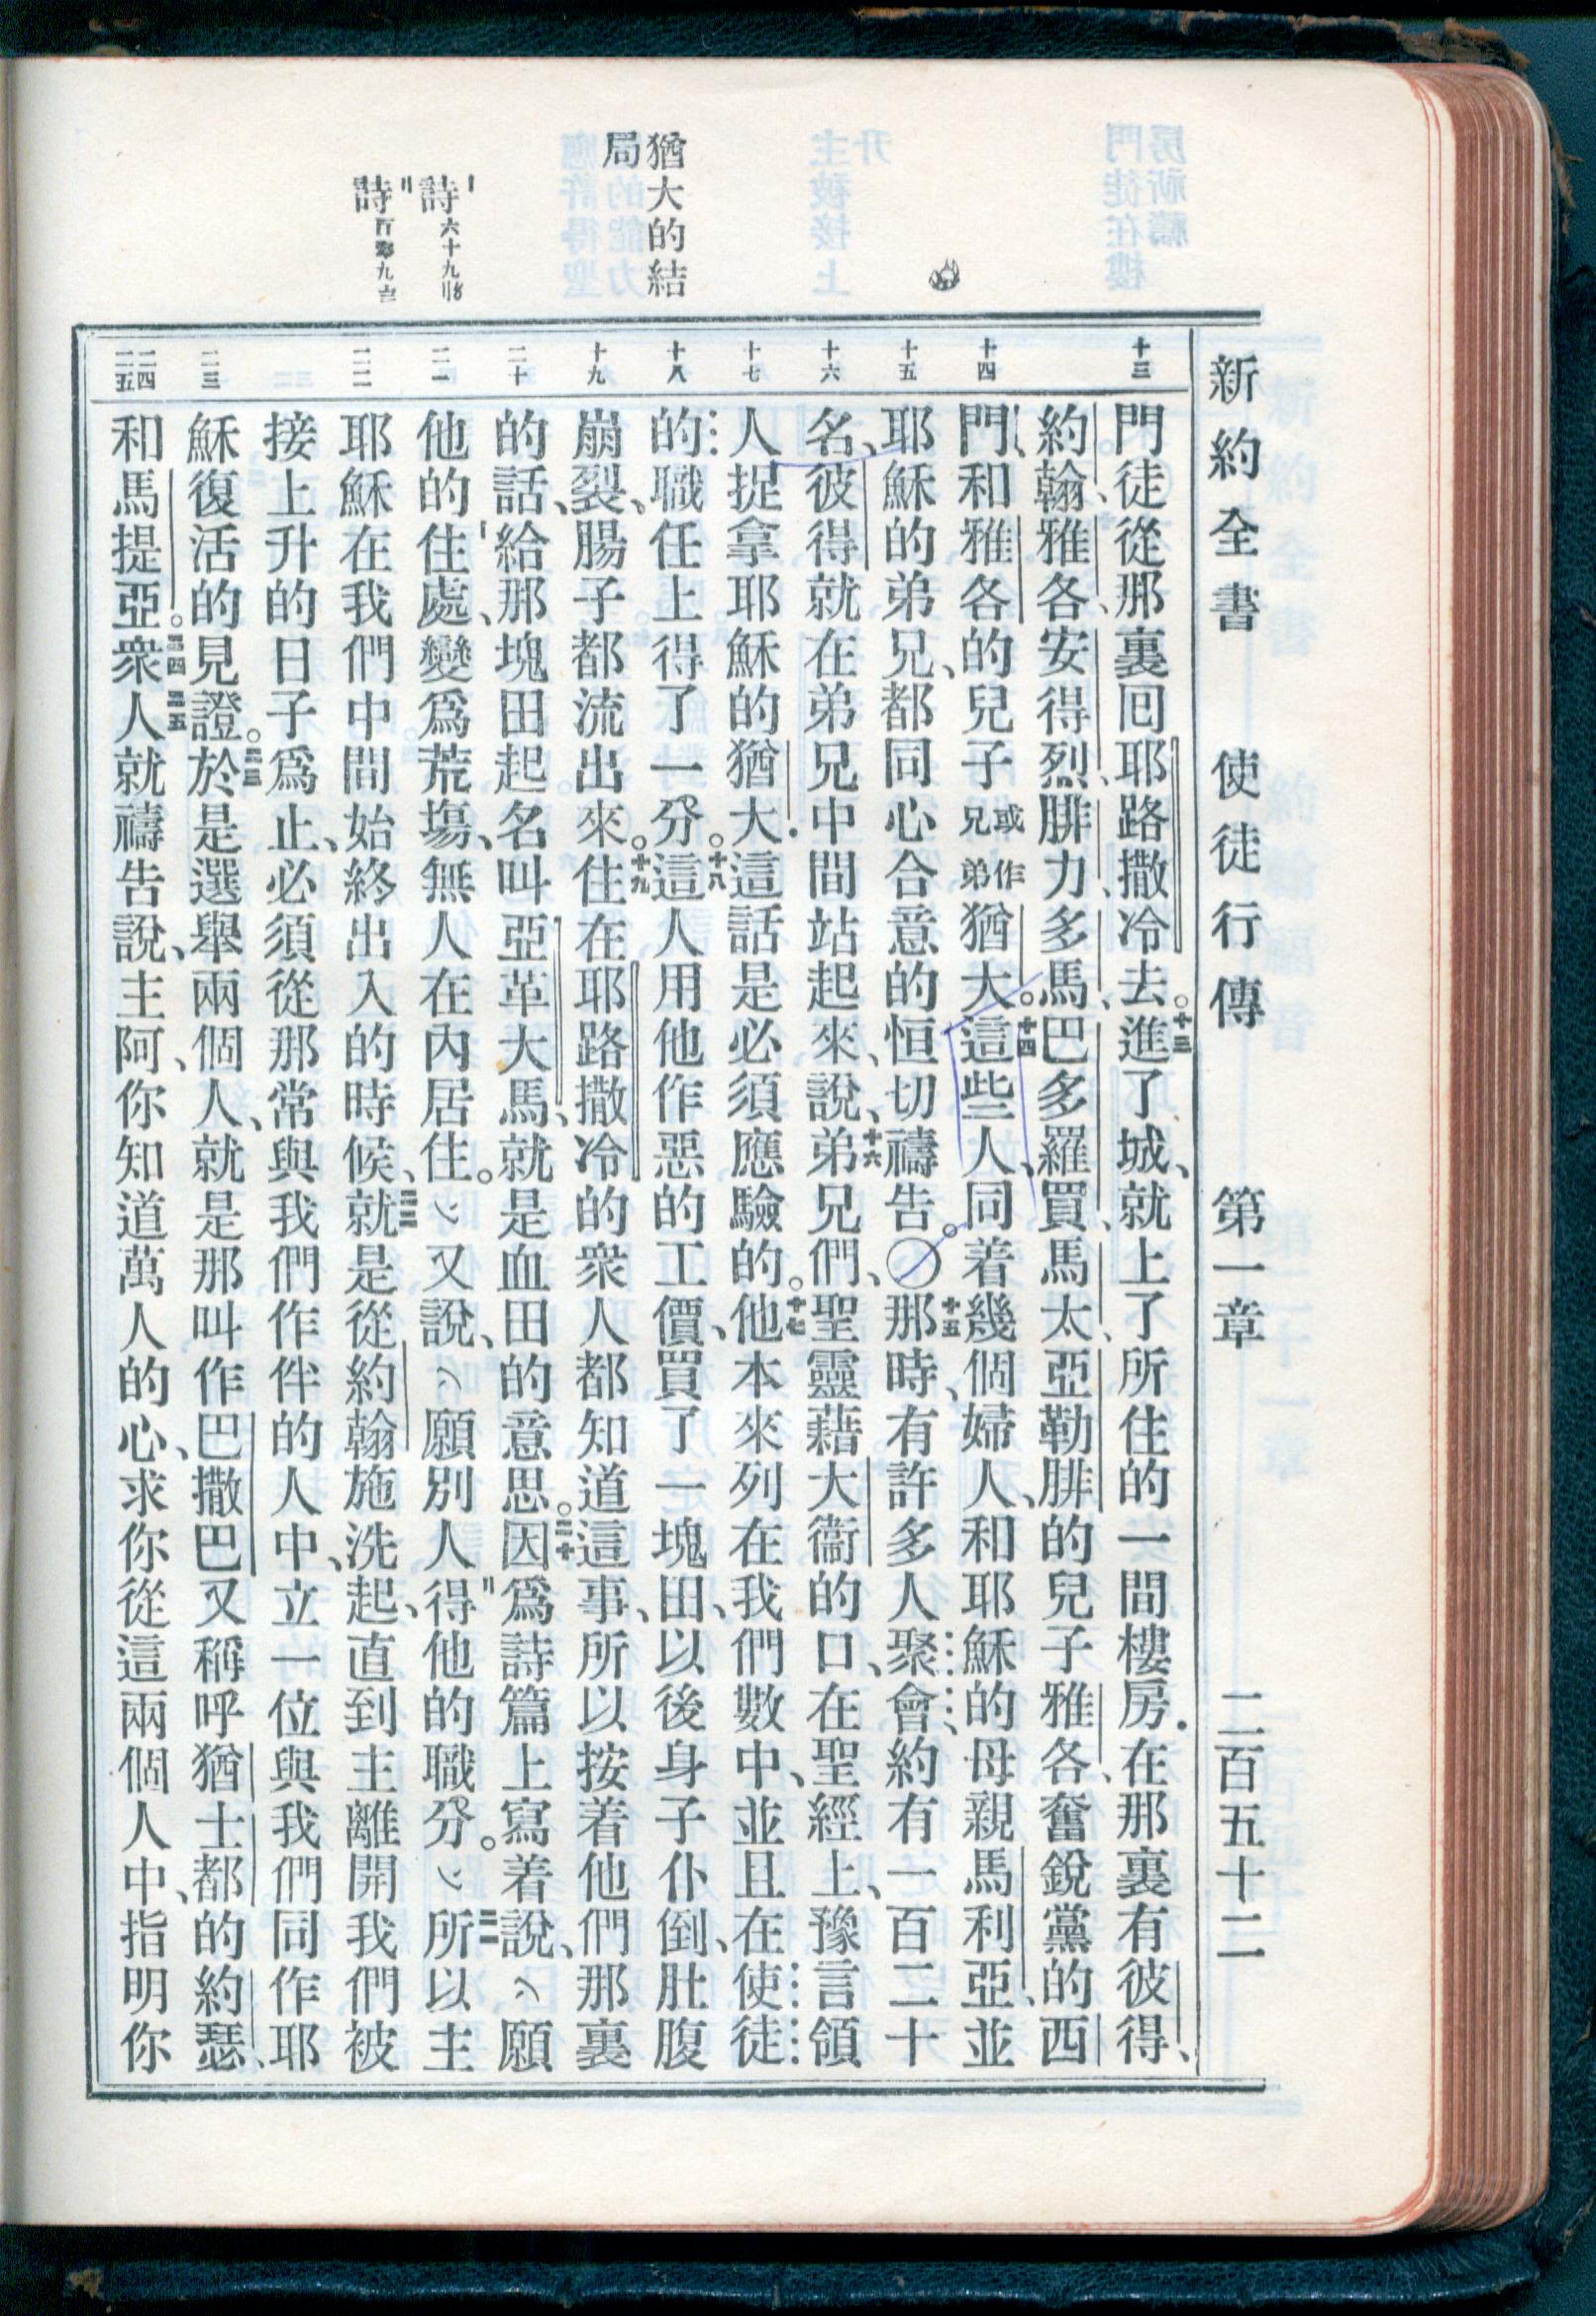 新約全書 使徒行傳 第一章 二百五十二
猶大的結
局
詩六十九
詩百零九
十三
十四
十五
十六
十七
十八
十九
二十
二一
二二
二三
二四
二五
門徒從那裏囘耶路撒冷去。十三進了城、就上了所住的一間樓房．在那裏有彼得、
約翰、雅各、安得烈、腓力、多馬、巴多羅買、馬太、亞勒腓的兒子雅各、奮銳黨的西
門、和雅各的兒子或作兄弟猶大。十四這些人、同着幾個婦人、和耶穌的母親馬利亞、並
耶穌的弟兄、都同心合意的恒切禱告。〇十五那時、有許多人聚會、約有一百二十
名、彼得就在弟兄中間站起來、說、十六弟兄們、聖靈藉大衞的口、在聖經上、豫言領
人捉拿耶穌的猶大．這話是必須應驗的。十七他本來列在我們數中、並且在使徒
的職任上得了一分。十八這人用他作惡的工價、買了一塊田、以後身子仆倒、肚腹
崩裂、腸子都流出來。十九住在耶路撒冷的衆人都知道這事、所以按着他們那裏
的話、給那塊田起名叫亞革大馬、就是血田的意思。二十因爲詩篇上寫着說、︵願
他的住處、變爲荒塲、無人在內居住。︶又說、︵願別人得他的職分。︶二一所以主
耶穌在我們中間始終出入的時候、二二就是從約翰施洗起、直到主離開我們被
接上升的日子爲止、必須從那常與我們作伴的人中、立一位與我們同作耶
穌復活的見證。二三於是選舉兩個人、就是那叫作巴撒巴又稱呼猶士都的約瑟、
和馬提亞。二四二五衆人就禱告說、主阿、你知道萬人的心、求你從這兩個人中、指明你